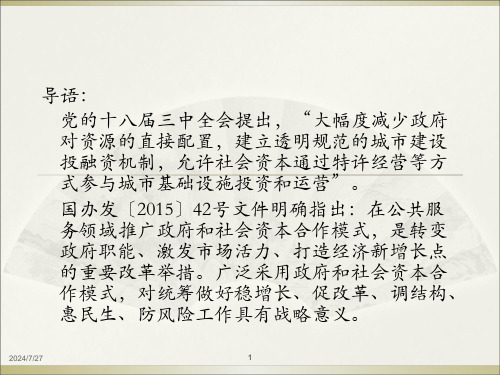 导语：
党的十八届三中全会提出，“大幅度减少政府
对资源的直接配置，建立透明规范的城市建设
投融资机制，允许社会资本通过特许经营等方
式参与城市基础设施投资和运营”。
国办发〔2015〕42号文件明确指出：在公共服
务领域推广政府和社会资本合作模式，是转变
政府职能、激发市场活力、打造经济新增长点
的重要改革举措。广泛采用政府和社会资本合
作模式，对统筹做好稳增长、促改革、调结构、
惠民生、防风险工作具有战略意义。
2024/7/27
1